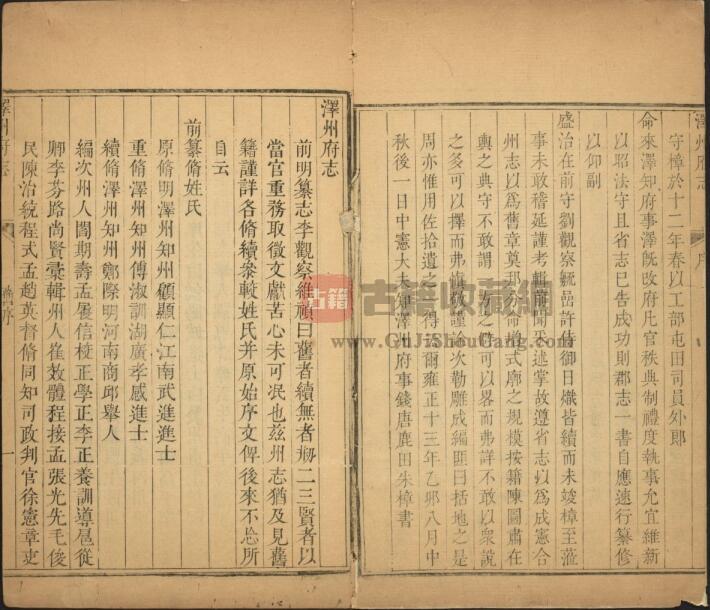 澤州府志
序
守樟於十二年春以工部屯田司員外郎
命來澤知府事澤旣改府凡官秩典制禮度執事允宜維新
以昭法守且省志已告成功則郡志一書自應速行纂修
以仰副
盛治在前守劉觀察毓嵒許侍御日熾皆續而未竣樟至蒞
事未敢稽延謹考輯前聞
州志以爲舊章莫
輿之典守不敢謂
之多可以擇而弗
周亦惟用佐拾遺之
秋後一日中憲大夫知澤州府事錢唐鹿田朱樟書
澤州府志
前明纂志李觀察維禎曰舊者續無者剏二三賢者以
當官重務取徵文獻苦心未可泯也茲州志猶及見舊
籍謹詳各脩續叅較姓氏并原始序文俾後來不忘所
自云
前纂脩姓氏
原脩明澤州知州顧顯仁江南武進進士
重脩澤州知州傅淑訓湖廣孝感進士
續脩澤州知州鄭際明河南商邱舉人
編次州人閻期壽孟屢信校正學正李正養訓導扈從
卿李芬路尚賢彙輯州人崔效體程接孟張光先毛俊
民陳治統程式孟趙英督脩同知司政判官徐憲章吏
澤州府志
舊序
一
古籍
古籍收藏網
www.GuJiShouGang.com